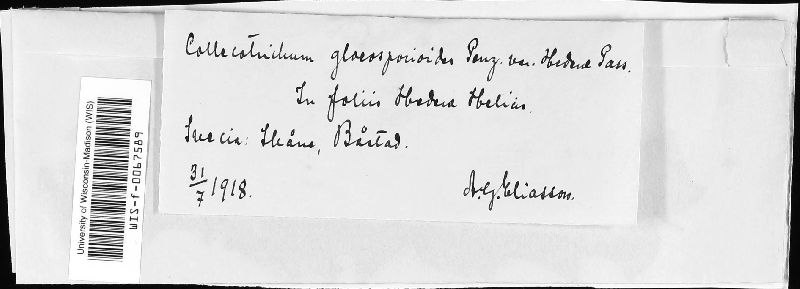 Colletotrichum gloeosporioides Penz. var. Hederæ Pass.
In foliis Hedera Helicis.
Suecia: Skåne, Båstad.
31/7 1918.
A.G. Eliasson.
University of Wisconsin-Madison (WIS)
WIS-f-0067589